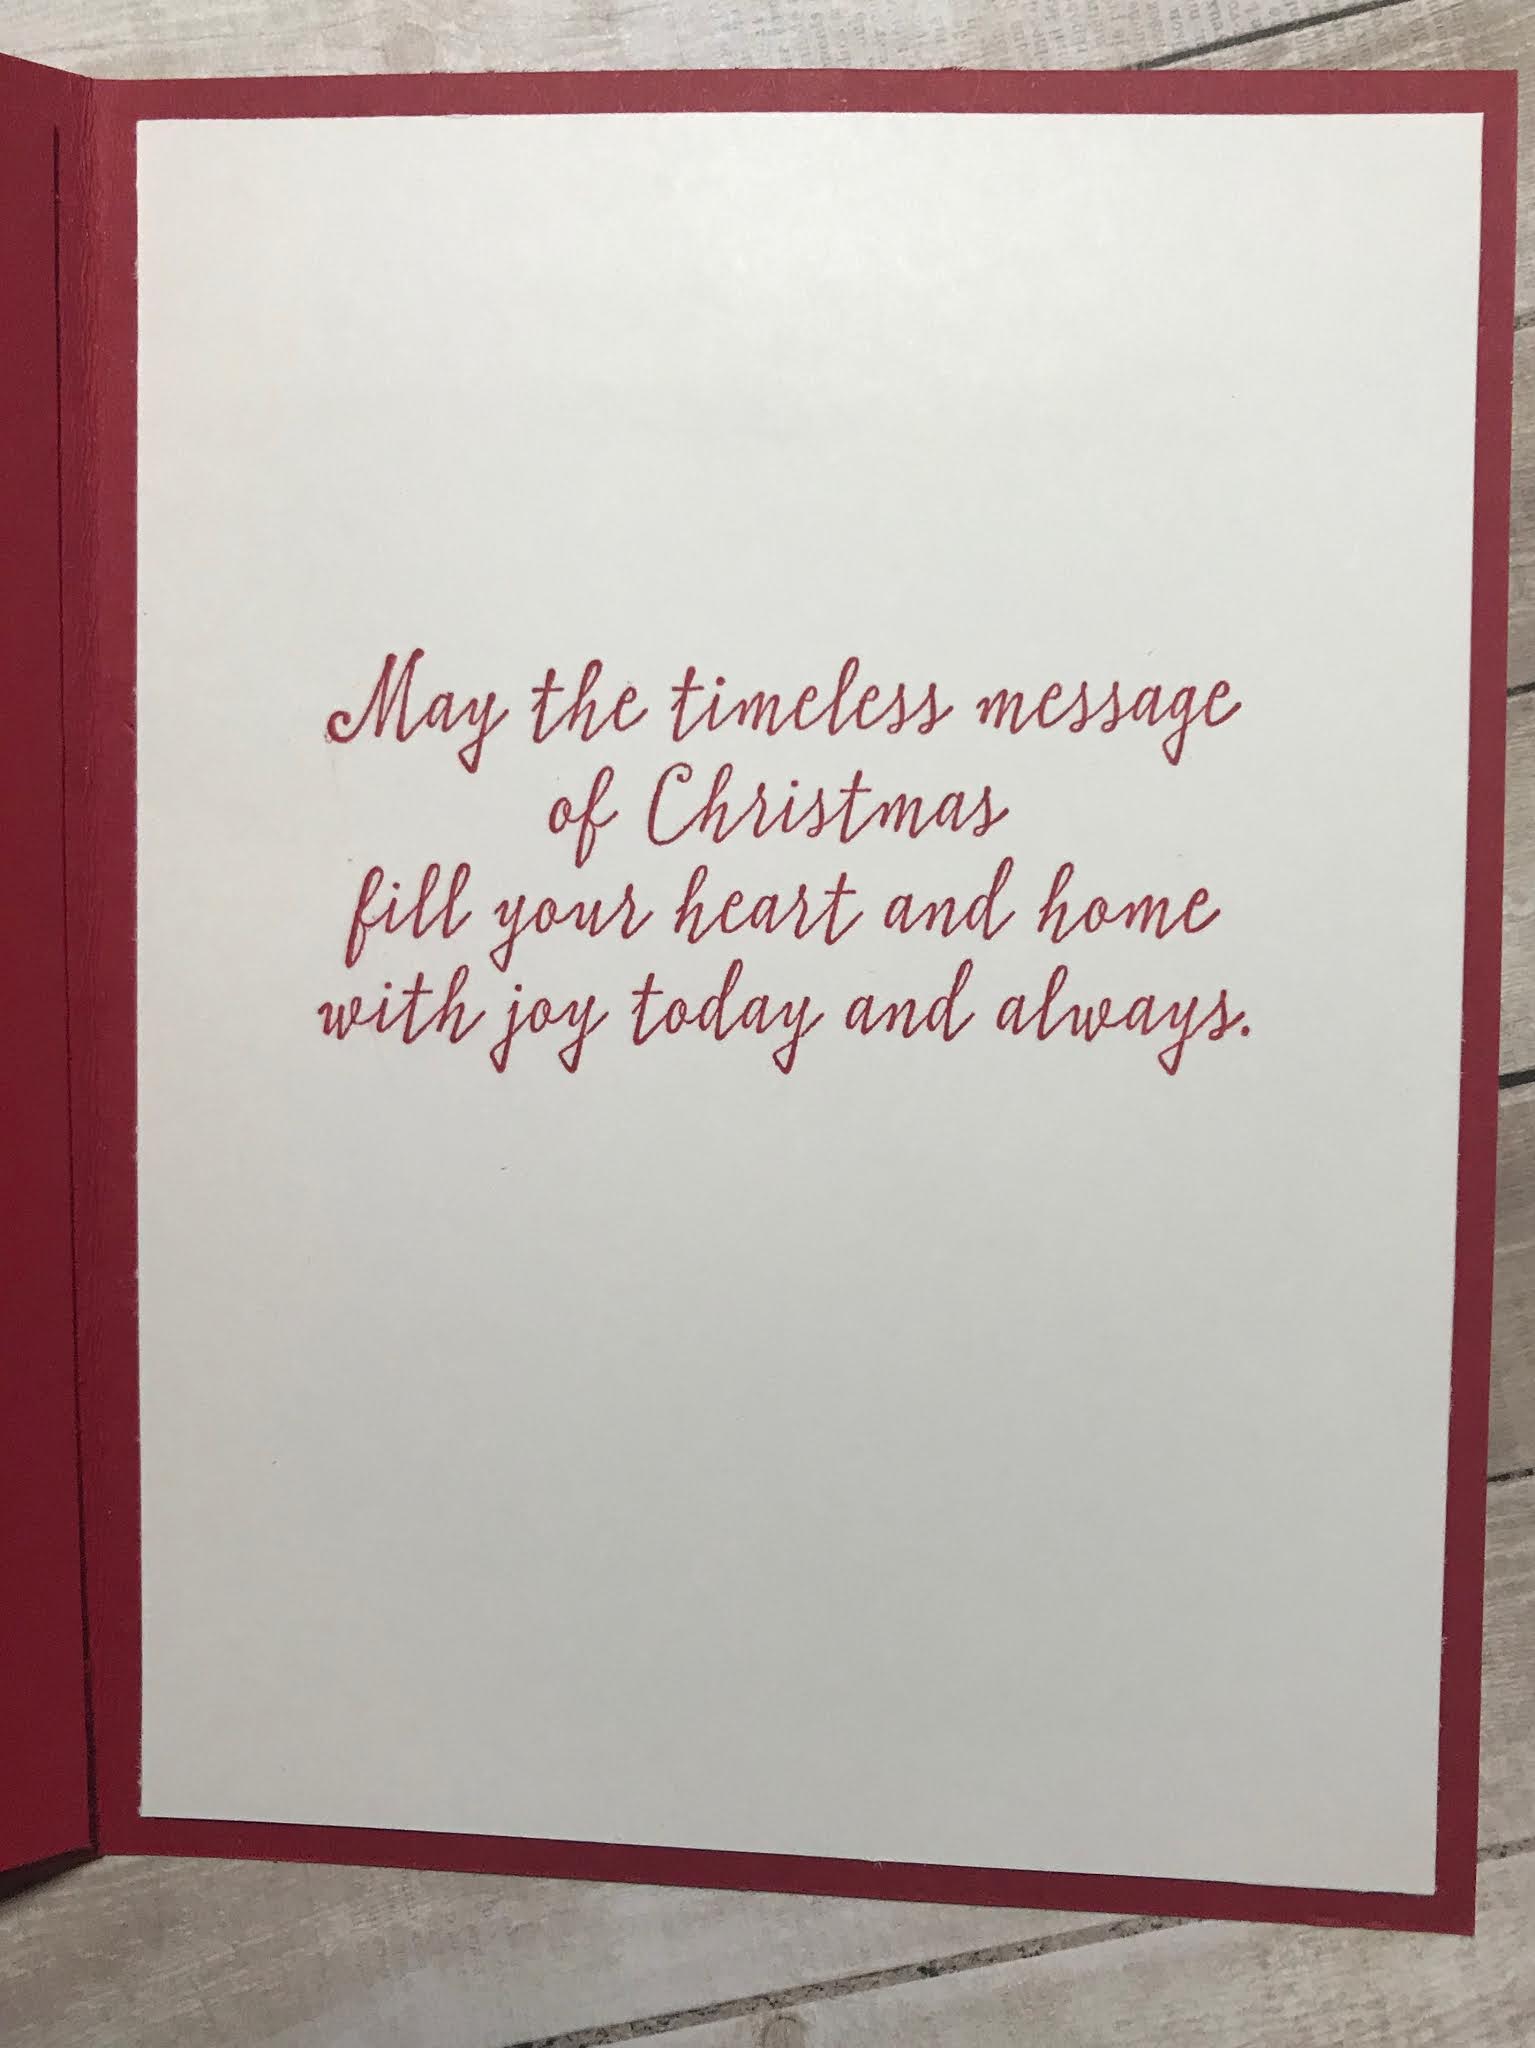 May the timeless message
of Christmas
fill your heart and home
with joy today and always.